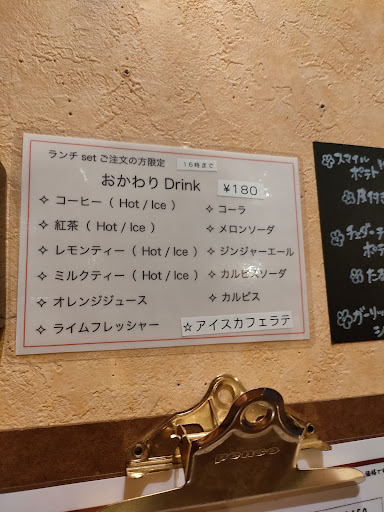 ランチ set ご注文の方限定 16時まで
おかわり Drink ¥180
✧ コーヒー（ Hot / Ice ）
✧ 紅茶（ Hot / Ice ）
✧ レモンティー（ Hot / Ice ）
✧ ミルクティー（ Hot / Ice ）
✧ オレンジジュース
✧ ライムフレッシャー
✧ コーラ
✧ メロンソーダ
✧ ジンジャーエール
✧ カルピスソーダ
✧ カルピス
☆アイスカフェラテ
スマイル
ポテト
皮付き
チェダーチ
ポテ
ガーリッ
penco